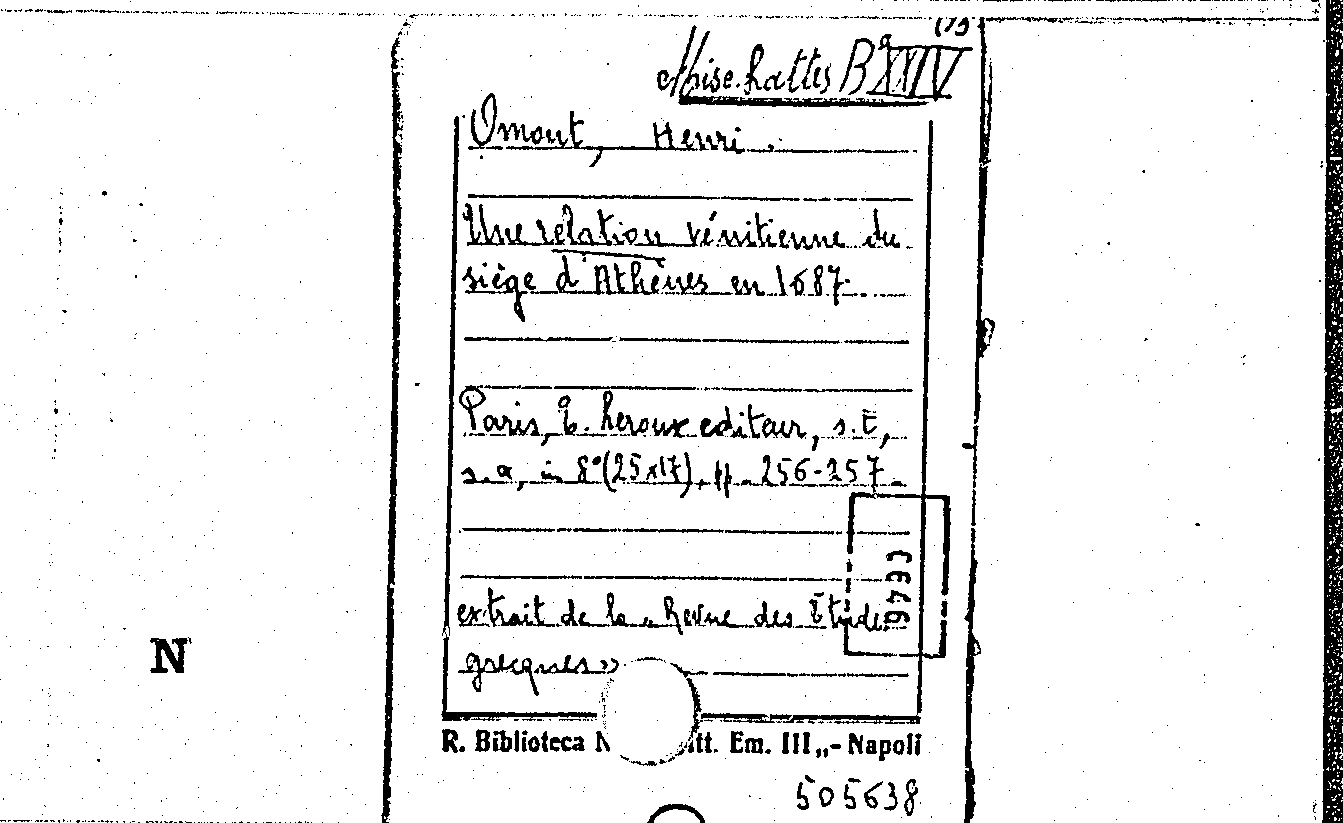 Misc. hattes B XXIV
Omont, Henri.
Une relation vénitienne du
siège d'Athènes en 1687.
Paris, E. Leroux editeur, s.t,
s.a, in 8°(25x17), pp. 256-257.
extrait de la „ Revue des Etudes
grecques »
N
R. Biblioteca N tt. Em. III„- Napoli
505638